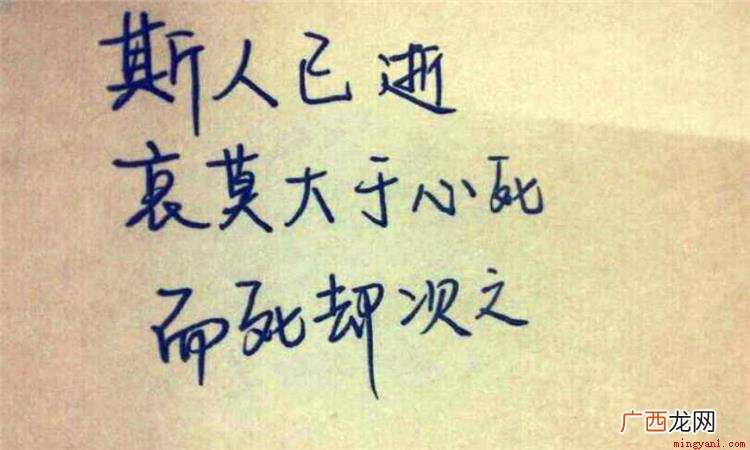 斯人已逝
哀莫大于心死
而死却次之
广西龙网
mingyan1.com